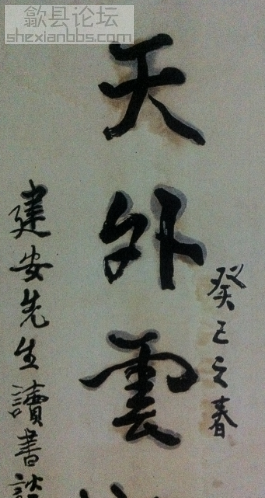 歙县论坛
shexianbbs.com
癸巳之春
天外雲
建安先生讀書